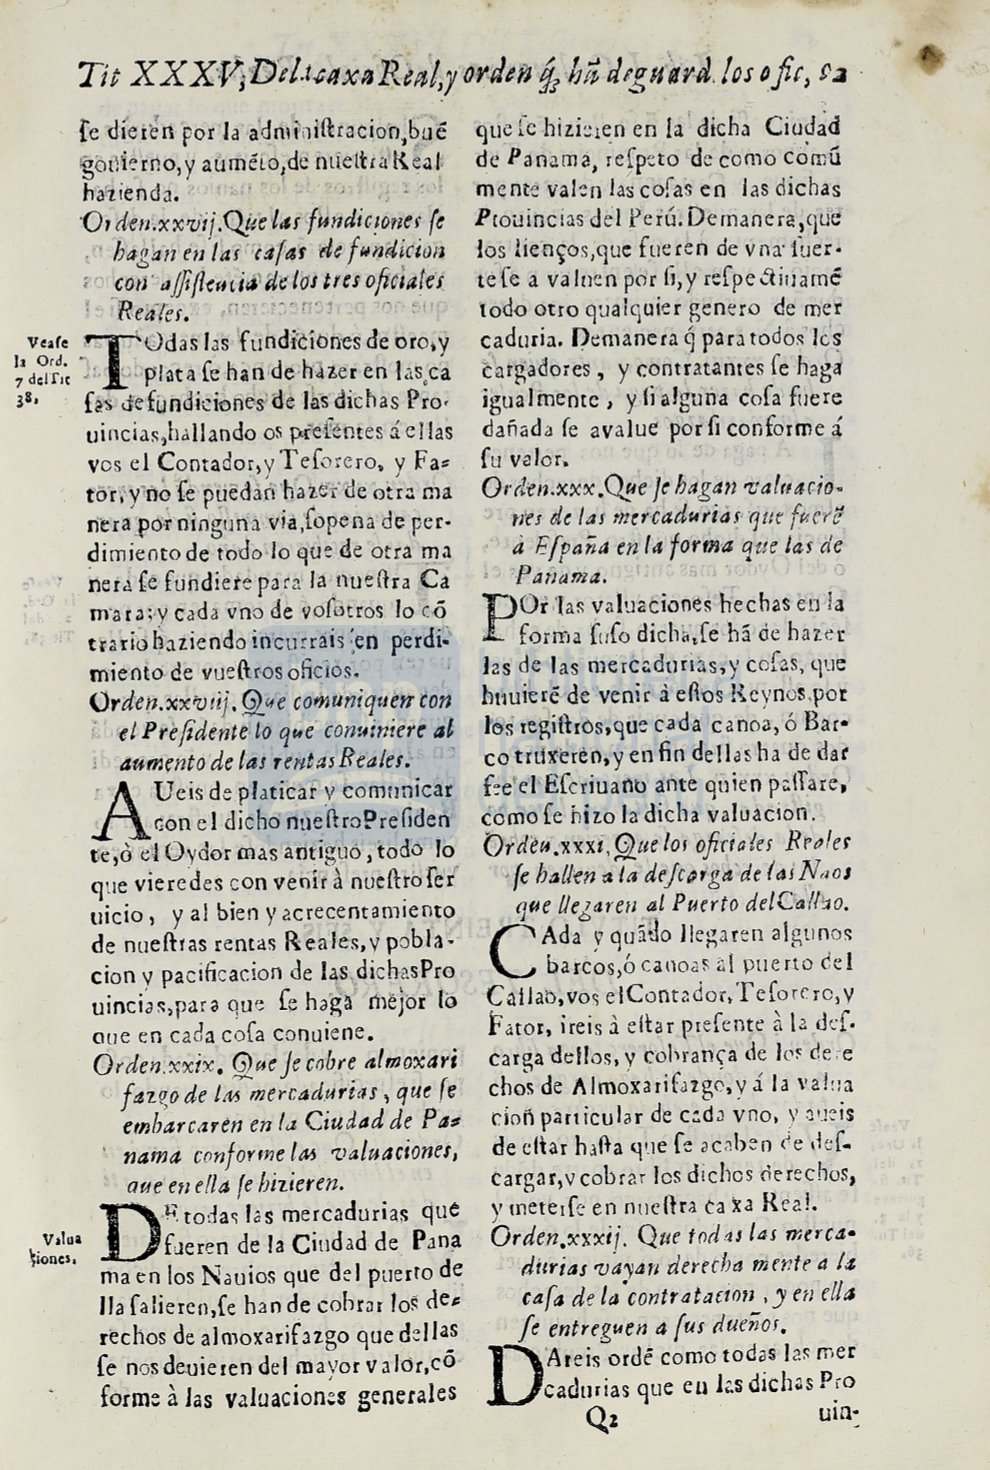 Tit XXXV, De la caxa Real, y orden q̃ hã de guard. los ofic, 92
se dieren por la administracion, buē
gouierno, y aumēto, de nuestra Real
hazienda.
Orden.xxvij. Que las fundiciones se
hagan en las casas de fundicion
con assistencia de los tres oficiales
Reales.
Vease
la Ord.
7 del Tit
38.
TOdas las fundiciones de oro, y
plata se han de hazer en las ca
sas de fundiciones de las dichas Pro-
uincias, hallando os presentes á ellas
vos el Contador, y Tesorero, y Fa-
tor, y no se puedan hazer de otra ma
nera por ninguna via, sopena de per-
dimiento de todo lo que de otra ma
nera se fundiere para la nuestra Ca
mara: y cada vno de vosotros lo cō
trario haziendo incurrais en perdi-
miento de vuestros oficios.
Orden.xxviij. Que comuniquen con
el Presidente lo que conuiniere al
aumento de las rentas Reales.
AUeis de platicar y comunicar
con el dicho nuestro Presiden
te, ò el Oydor mas antiguo, todo lo
que vieredes con venir à nuestro ser
uicio, y al bien y acrecentamiento
de nuestras rentas Reales, y pobla-
cion y pacificacion de las dichas Pro
uincias, para que se haga mejor lo
que en cada cosa conuiene.
Orden.xxix. Que se cobre almoxari
fazgo de las mercadurias, que se
embarcaren en la Ciudad de Pa-
nama conforme las valuaciones,
que en ella se hizieren.
Valua
ciones.
DE todas las mercadurias que
fueren de la Ciudad de Pana
ma en los Nauios que del puerto de
lla salieren, se han de cobrar los de-
rechos de almoxarifazgo que dellas
se nos deuieren del mayor valor, cō
forme à las valuaciones generales
que se hizieren en la dicha Ciudad
de Panama, respeto de como comũ
mente valen las cosas en las dichas
Prouincias del Perú. Demanera, que
los lienços, que fueren de vna suer-
te se a valuen por si, y respectiuamē
todo otro qualquier genero de mer
caduria. Demanera q̃ para todos los
cargadores, y contratantes se haga
igualmente, y si alguna cosa fuere
dañada se avalue por si conforme á
su valor.
Orden.xxx. Que se hagan valuacio-
nes de las mercadurias que fuerē
à España en la forma que las de
Panama.
POr las valuaciones hechas en la
forma suso dicha, se hã de hazer
las de las mercadurias, y cosas, que
huuierē de venir à estos Reynos, por
los registros, que cada canoa, ó Bar-
co truxeren, y en fin dellas ha de dar
fee el Escriuano ante quien passare,
como se hizo la dicha valuacion.
Orden.xxxi. Que los oficiales Reales
se hallen a la descarga de las Naos
que llegaren al Puerto del Callao.
CAda y quãdo llegaren algunos
barcos, ó canoas al puerto del
Callao, vos el Contador, Tesorero, y
Fator, ireis à estar presente à la des-
carga dellos, y cobrança de los dere
chos de Almoxarifazgo, y á la valua
cion particular de cada vno, y aueis
de estar hasta que se acaben de des-
cargar, y cobrar los dichos derechos,
y meterse en nuestra caxa Real.
Orden.xxxij. Que todas las merca-
durias vayan derecha mente a la
casa de la contratacion, y en ella
se entreguen a sus dueños.
DAreis ordē como todas las mer
cadurias que en las dichas Pro
Q2
uin-